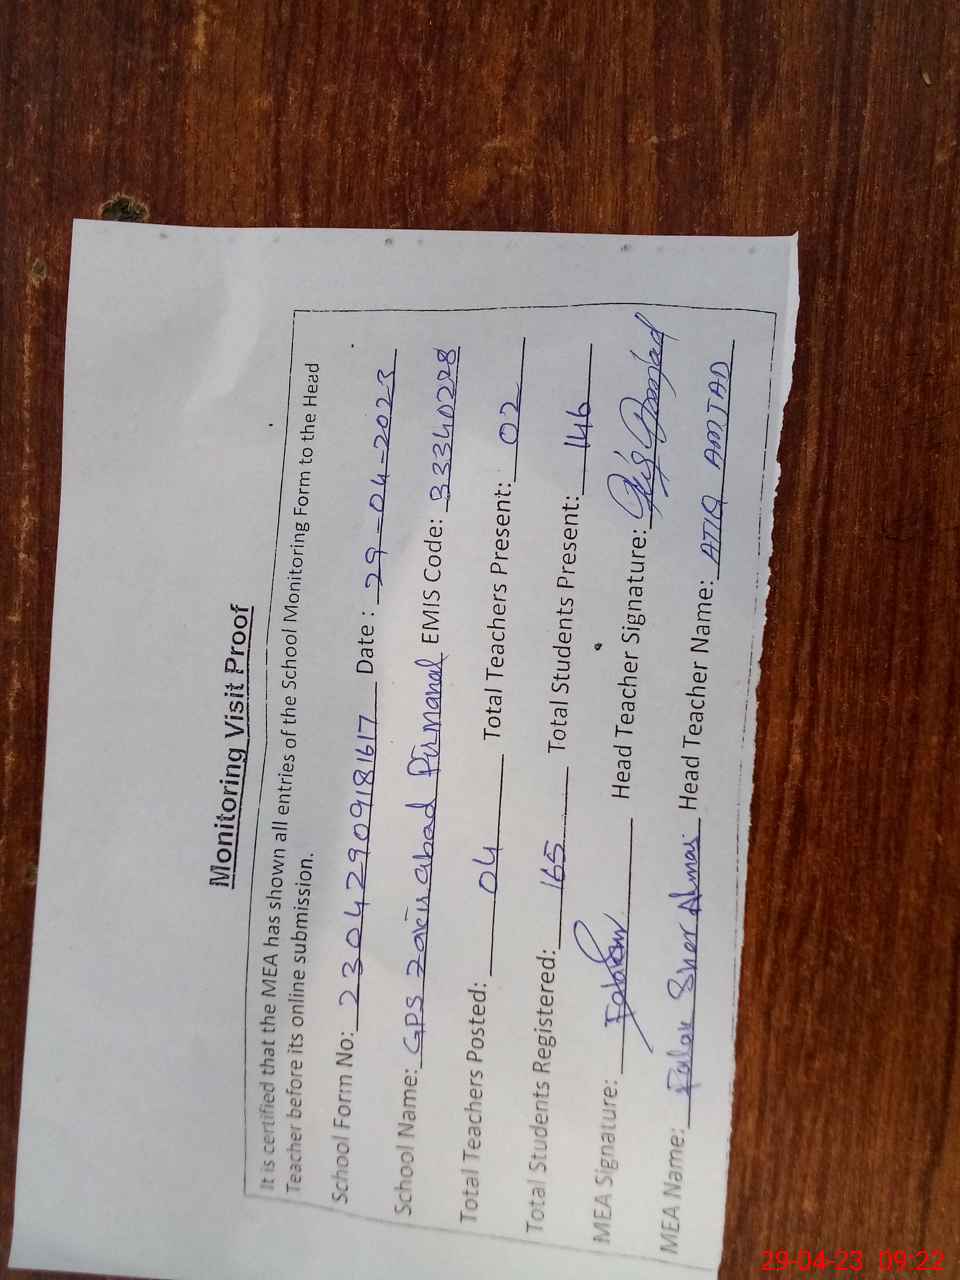 Monitoring Visit Proof
It is certified that the MEA has shown all entries of the School Monitoring Form to the Head
Teacher before its online submission.
School Form No: 23042909181617 Date : 29-04-2023
School Name: GPS Zakirabad Pirmahal EMIS Code: 33340228
Total Teachers Posted: 04 Total Teachers Present: 02
Total Students Registered: 165 Total Students Present: 146
MEA Signature: Head Teacher Signature:
MEA Name: Falak Sher Head Teacher Name: ATIQ AMJAD
29-04-23 09:22